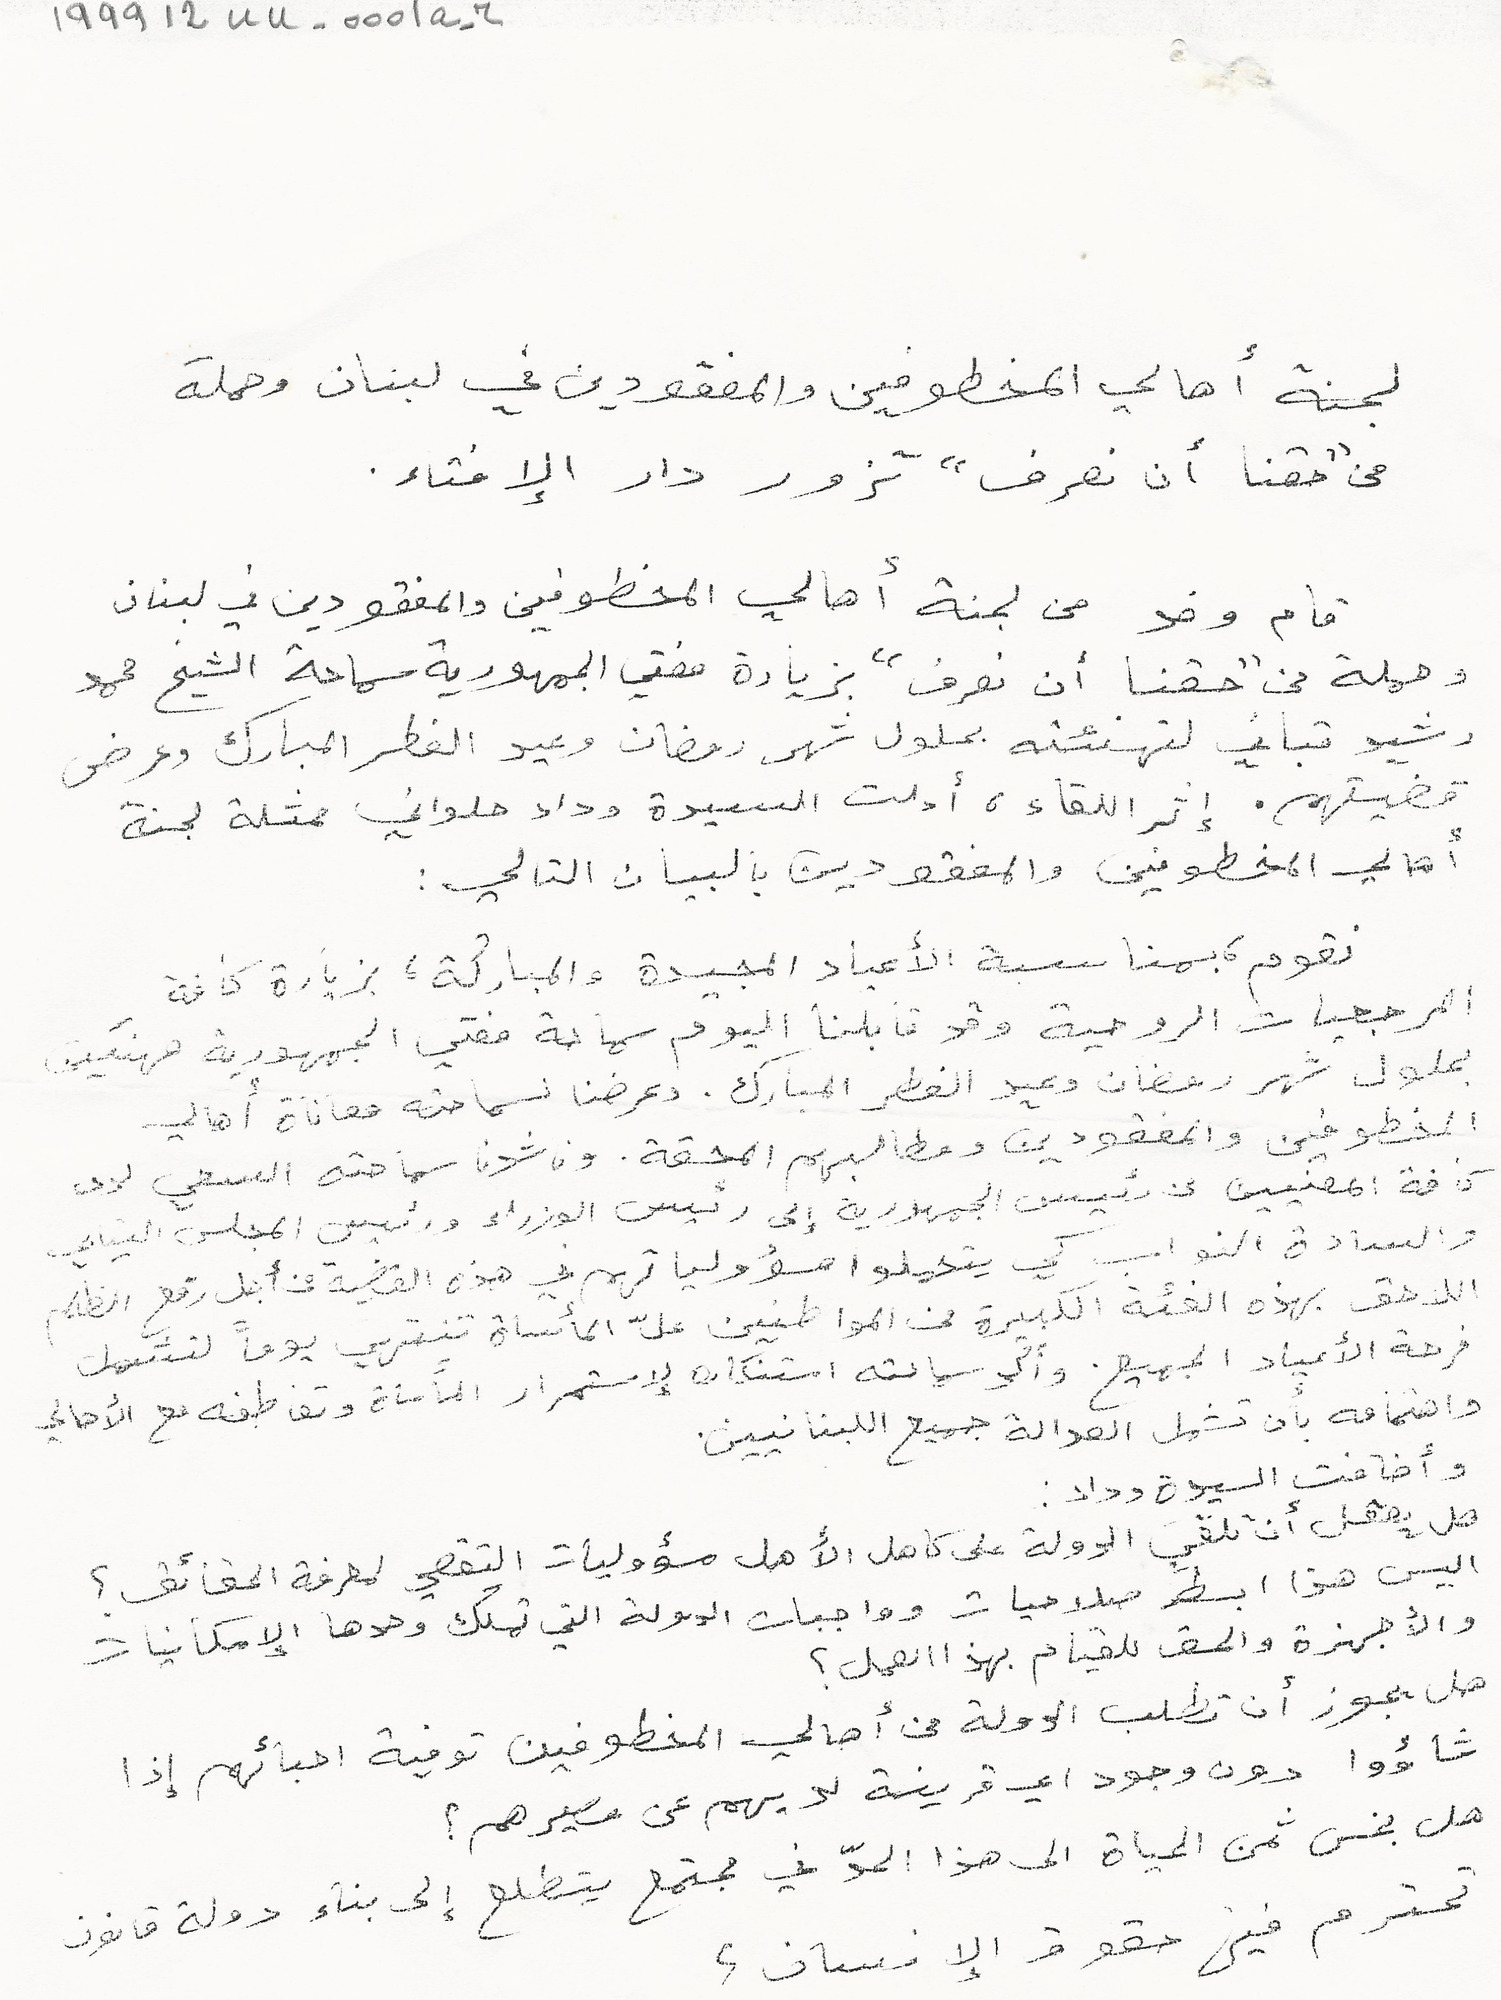 1999 12 uu - 0001a-r
لجنة أهالي المخطوفين والمفقودين في لبنان وحملة
من "حقنا أن نعرف" تزور دار الإفتاء.
قام وفد من لجنة أهالي المخطوفين والمفقودين في لبنان
وحملة من "حقنا أن نعرف" بزيارة مفتي الجمهورية سماحة الشيخ محمد
رشيد قباني لتهنئته بحلول شهر رمضان وعيد الفطر المبارك وعرض
قضيتهم. إثر اللقاء، أدلت السيدة وداد حلواني ممثلة لجنة
أهالي المخطوفين والمفقودين بالبيان التالي:
نقوم، بمناسبة الأعياد المجيدة والمباركة، بزيارة كافة
المرجعيات الروحية وقد قابلنا اليوم سماحة مفتي الجمهورية مهنئين
بحلول شهر رمضان وعيد الفطر المبارك. وعرضنا لسماحته معاناة أهالي
المخطوفين والمفقودين ومطالبهم المحقة. وناشدنا سماحته السعي لدى
كافة المعنيين من رئيس الجمهورية إلى رئيس الوزراء ورئيس المجلس النيابي
والسادة النواب كي يتحملوا مسؤولياتهم في هذه القضية من أجل رفع الظلم
اللاحق بهذه الفئة الكبيرة من المواطنين علّ المأساة تنتهي يوماً لتشمل
فرحة الأعياد الجميع. وأكد سماحته استنكاره لإستمرار المأساة وتعاطفه مع الأهالي
واهتمامه بأن تشمل العدالة جميع اللبنانيين.
وأضافت السيدة وداد:
هل يعقل أن تلقي الدولة على كاهل الأهل مسؤوليات التقصي لمعرفة الحقائق؟
اليس هذا ابسط صلاحيات وواجبات الدولة التي تملك وحدها الإمكانيات
والأجهزة والحق للقيام بهذا العمل؟
هل يجوز أن تطلب الدولة من أهالي المخطوفين توفية احبائهم إذا
شاؤوا دون وجود اي قرينة لديهم عن مصيرهم؟
هل بخس ثمن الحياة الى هذا الحدّ في مجتمع يتطلع إلى بناء دولة قانون
تحترم فيها حقوق الإنسان؟